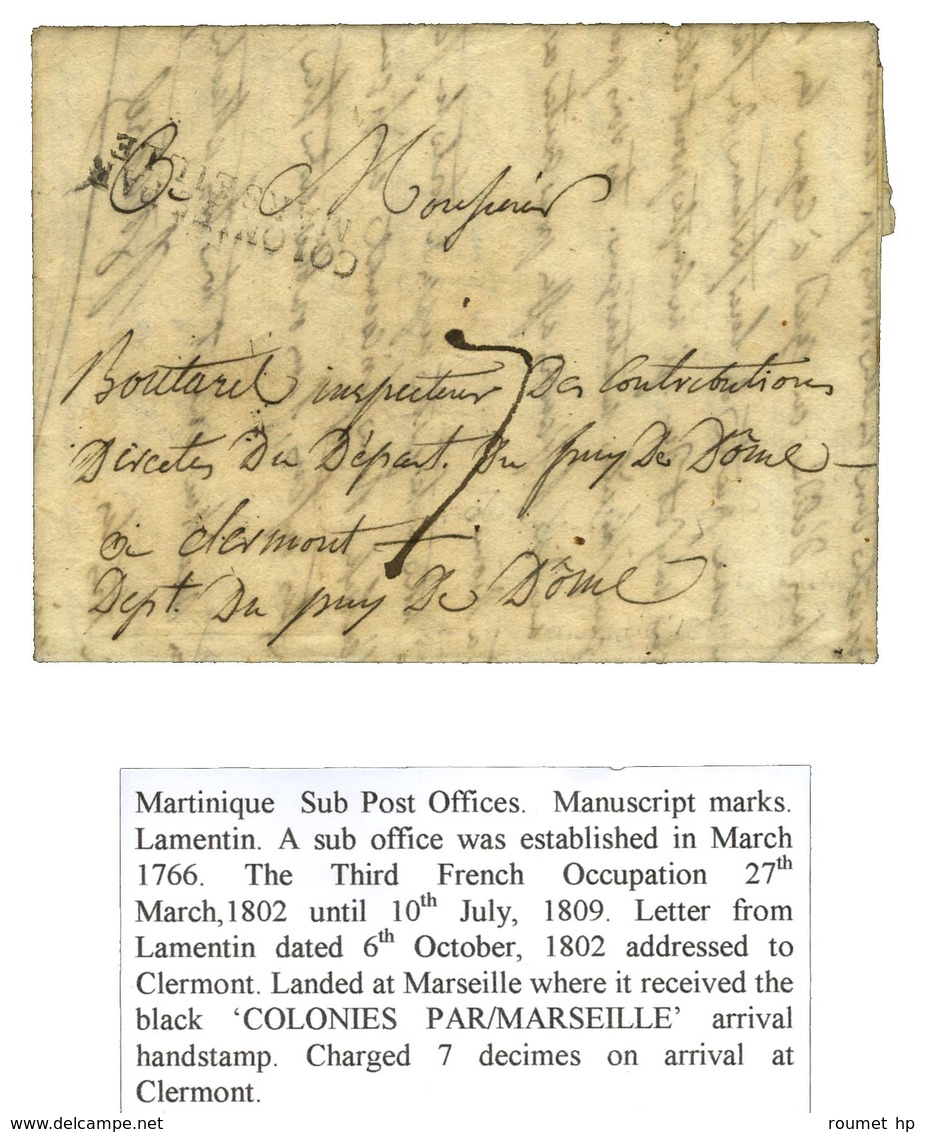 A Monsieur
COLONIES PAR
MARSEILLE
7
Boutarel inspecteur Des Contributions
Directes Du Départ. Du puy De Dôme
a clermont
Dept. Du puy De Dôme
Martinique Sub Post Offices. Manuscript marks.
Lamentin. A sub office was established in March
1766. The Third French Occupation 27th
March,1802 until 10th July, 1809. Letter from
Lamentin dated 6th October, 1802 addressed to
Clermont. Landed at Marseille where it received the
black ‘COLONIES PAR/MARSEILLE’ arrival
handstamp. Charged 7 decimes on arrival at
Clermont.
roumet hp